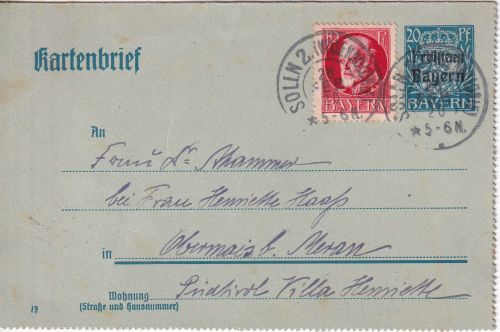 Kartenbrief
SOLLN 2.
★ 5-6 N.
BAYERN
20 Pf
Freistaat
Bayern
BAYERN
SOLLN
20
★ 5-6 N.
An
Frau Dr
bei Frau Henriette Haass
in Obermais b. Meran
Wohnung
(Straße und Hausnummer)
Südtirol Villa Henriette
19